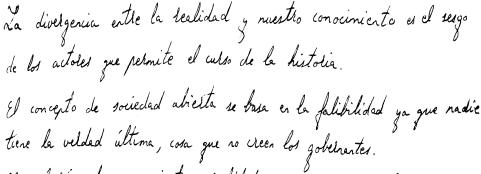 La divergencia entre la realidad y nuestro conocimiento es el sesgo
de los actores que permite el curso de la historia.
El concepto de sociedad abierta se basa en la falibilidad ya que nadie
tiene la verdad última, cosa que no creen los gobernantes.